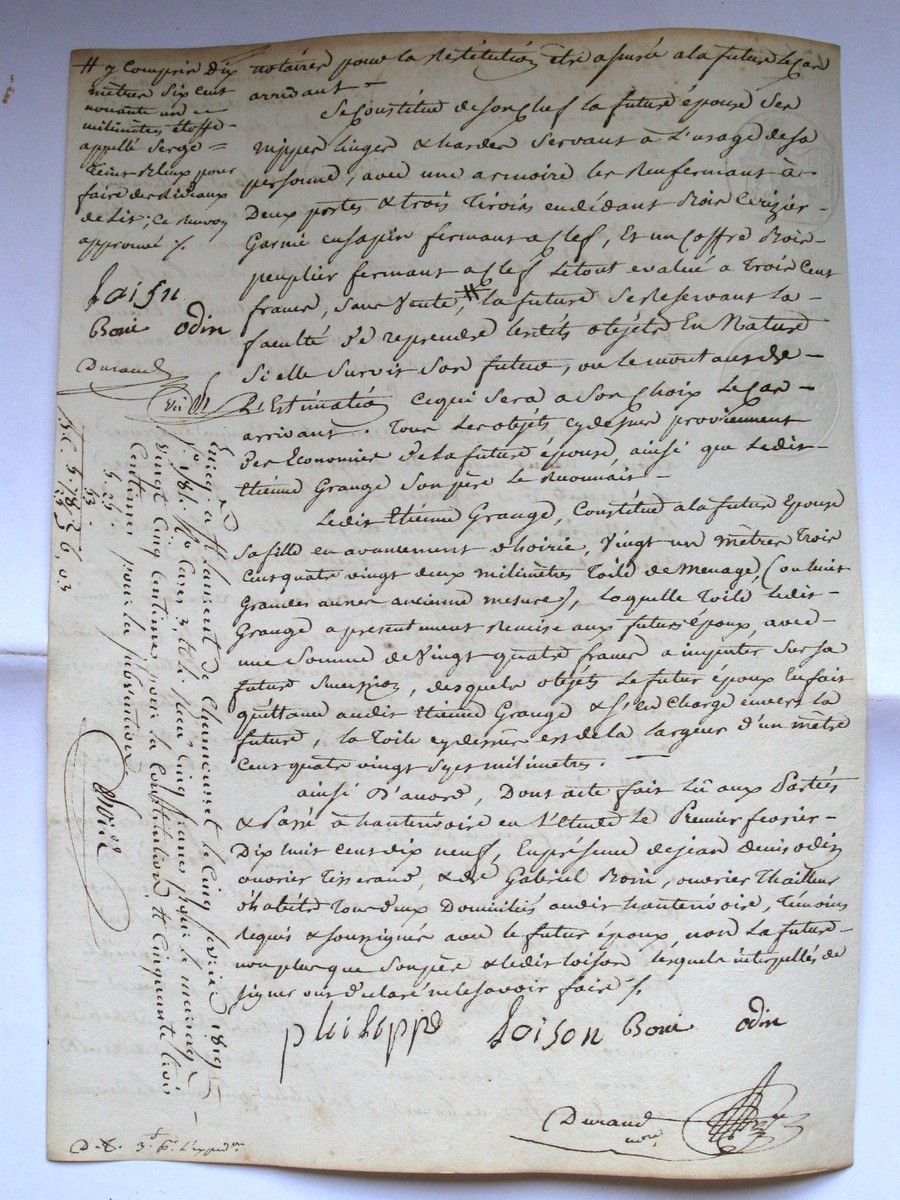 # y Compris Dix
mètres Six cent
nonante un =
milimètres étoffe
appellé Serge =
teint Bleux pour
faire des Rideaux
de Lit; ce Renvoy
approuvé /.
Loison
Boni odin
Durand
notaires pour la Restitution être assurée a la future le Cas
arrivant =
Se Constitue de son Chef la future épouse Ses
nippes linges & hardes Servant à L'usage de sa
personne, avec une armoire les Renfermant à
Deux portes & trois Tiroirs en dédant Bois Cerizier
Garnie en sapin fermant a Clef, Et un Coffre Bois
peuplier fermant a Clef Le tout evalué a Trois Cent
francs, Sans Vente, # la future Se Reservant La
faculté De reprendre lesdits objets En Nature
Si elle Survit Son futur, ou le montant de
L'Estimation Ce qui Sera a Son Choix Le Cas
arrivant. Tous Les objets cy dessus proviennent
Des Economies De la future épouse, ainsi que Ledit
Etienne Grange Son père le Reconnait
Ledit Etienne Grange, Constitue a la future Epouse
Sa fille en avancement d'hoirie, Vingt un mètres Trois
Cent quatre vingt deux milimètres Toile de Menage, (ou huit
Grandes aunes ancienne mesure), Laquelle Toile Ledit
Grange a presentement Remise aux futurs époux, avec
une Somme de Vingt quatre francs a imputer Sur Sa
future Succession, desquels objets Le futur époux En fait
quittance audit Etienne Grange & s'en Charge envers la
future, la Toile cy dessus est de la largeur d'un mètre
Cent quatre vingt Sept milimètres.
ainsi D'accord, Dont acte fait Lû aux Parties
& Passé à hauterivoire en l'Etude Le Premier fevrier
Dix huit cent dix neuf, En présence de jean denis odin
ouvrier Tisserand, & de Gabriel Boni, ouvrier Thailleur
d'habits Tous deux Domiciliés audit hauterivoire, Temoins
Requis & Soussignés avec le futur époux, non La future
non plus que Son père & ledit Loison Lesquels interpellés de
signer ont Déclaré ne le Savoir faire /.
philippe Loison Boni odin
Durand
nore
Enreg. à St Laurent de Chamousset le Cinq fevrier 1819
fo 181. Vo Cases 3, et 4. Reçu Cinq francs pour le mariage
Vingt Cinq Centimes pour la Constitution, et Cinquante trois
Centimes pour la subvention